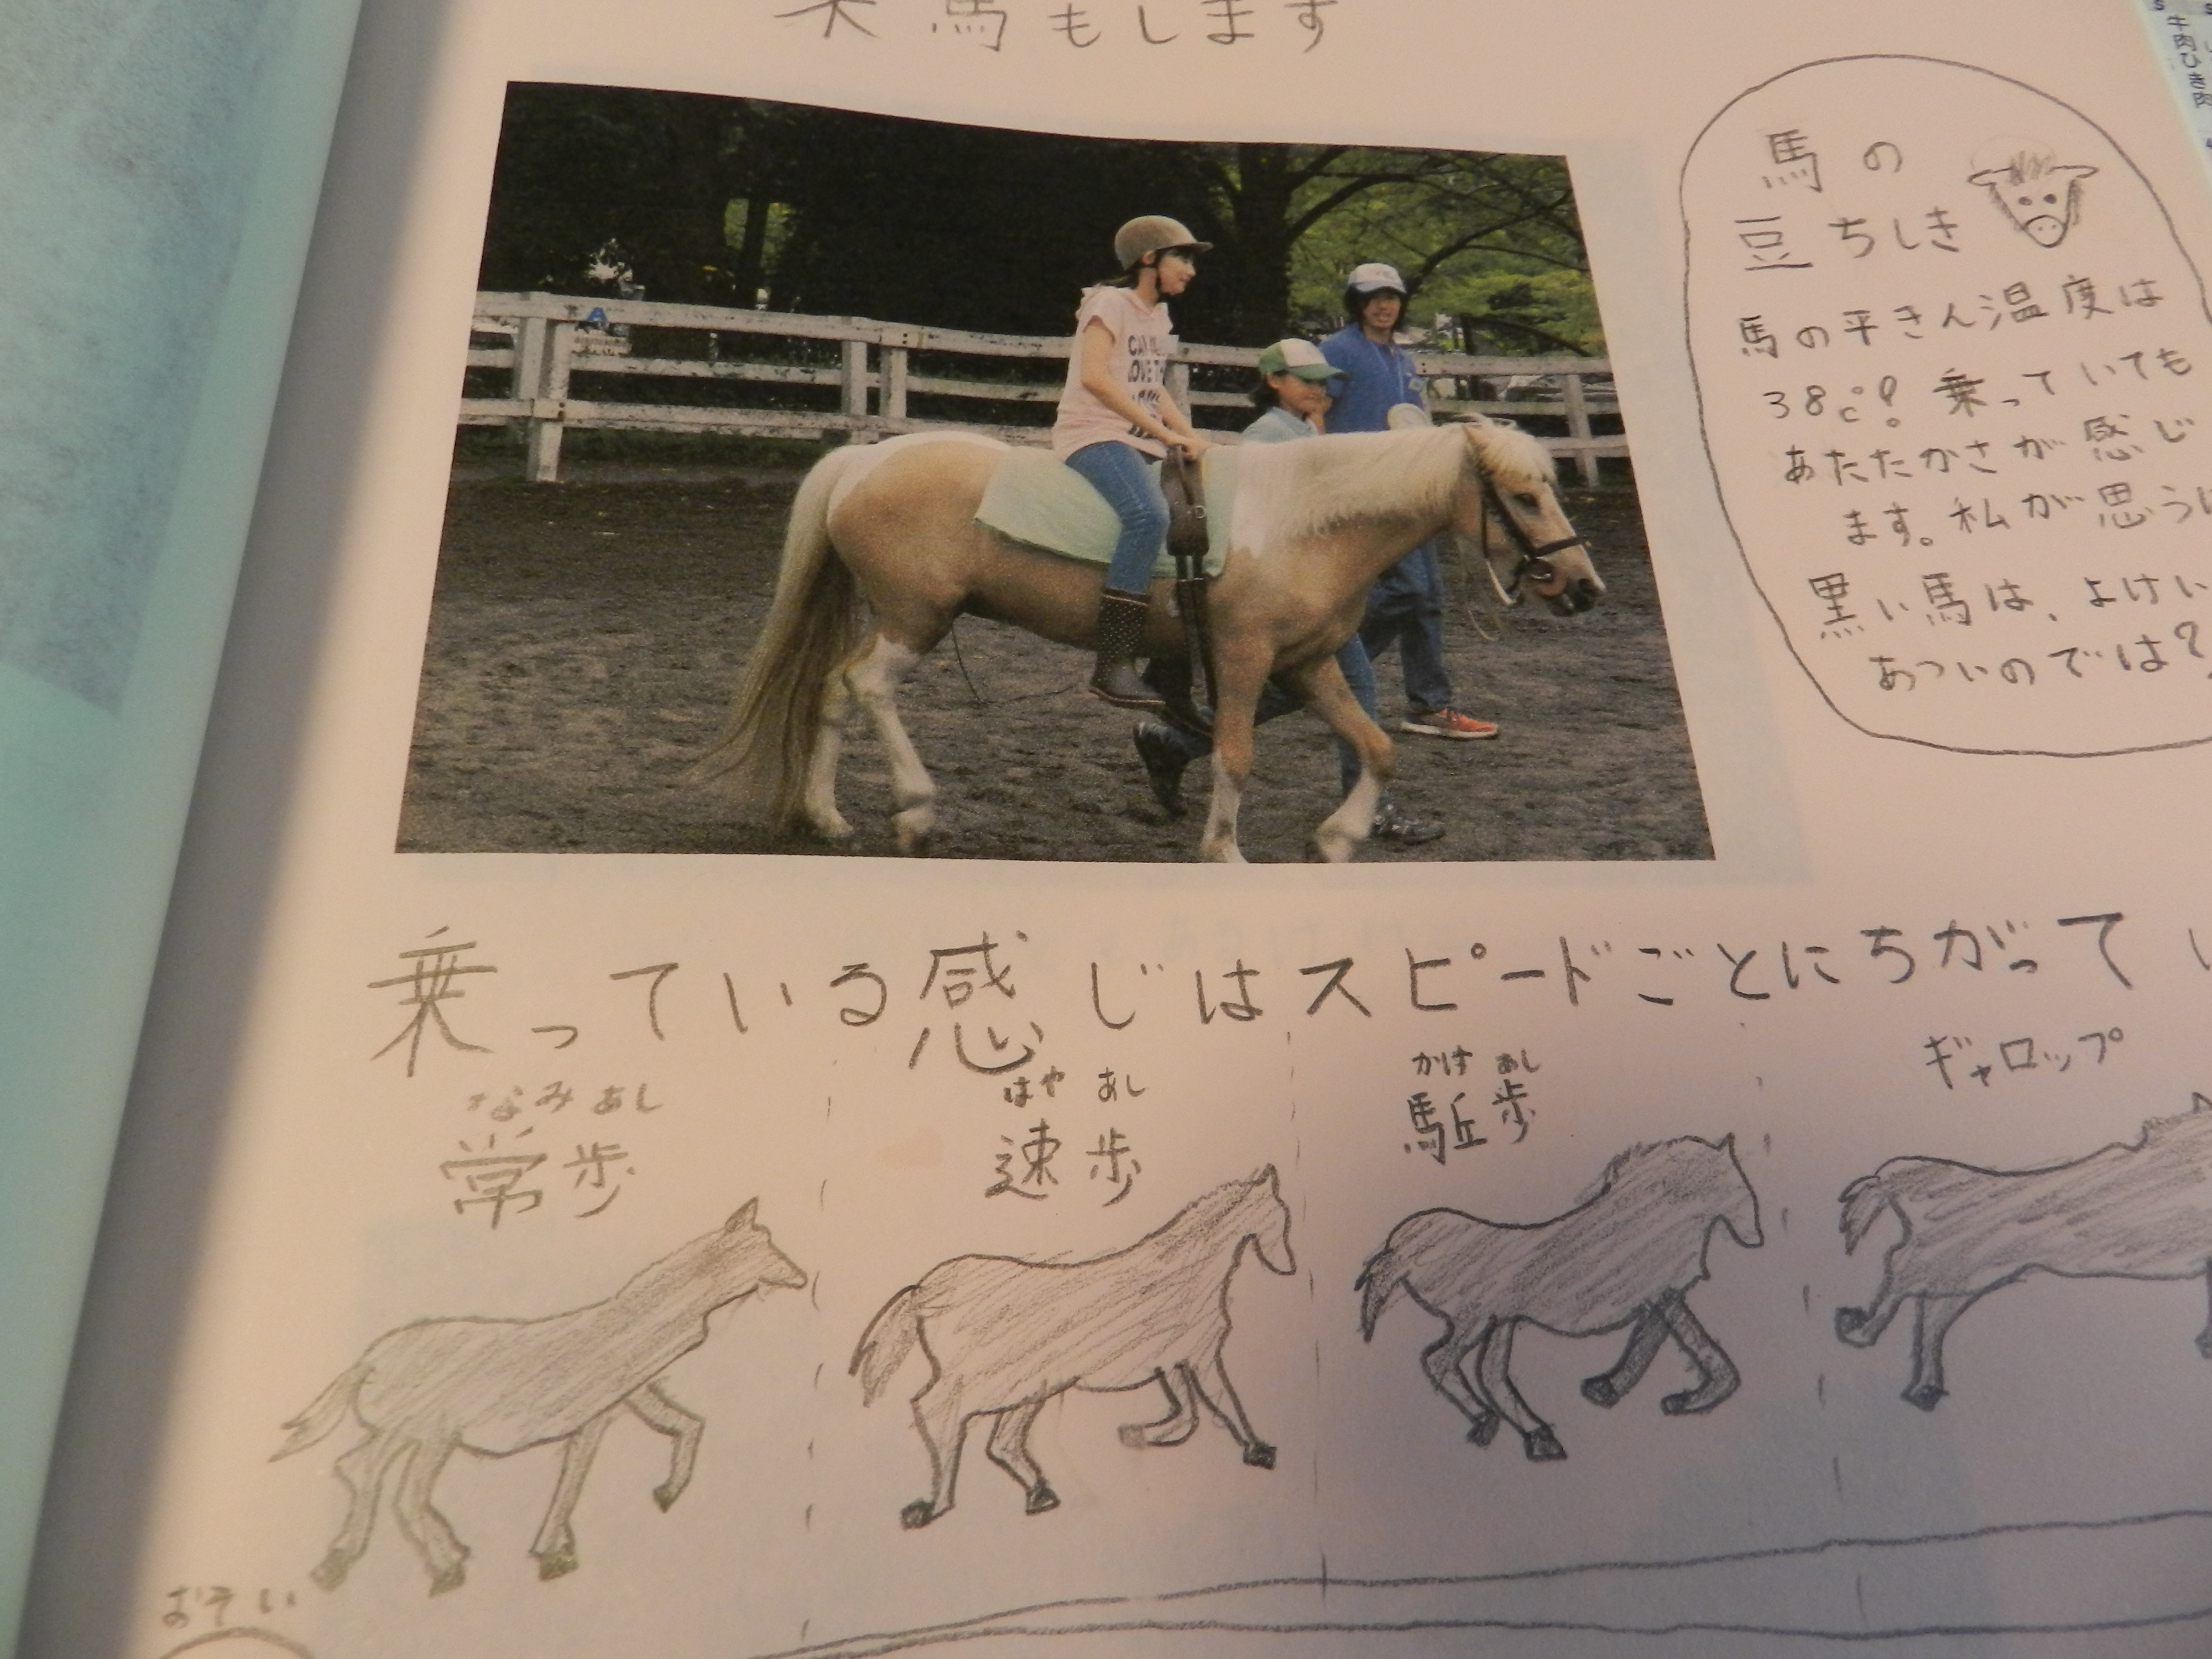 乗馬もします
馬の
豆ちしき
馬の平きん温度は
38℃。乗っていても
あたたかさが感じ
ます。私が思うに
黒い馬は、よけい
あついのでは?
乗っている感じはスピードごとにちがってい
なみあし
常歩
はやあし
速歩
かけあし
駈歩
ギャロップ
おそい
牛肉ひき肉